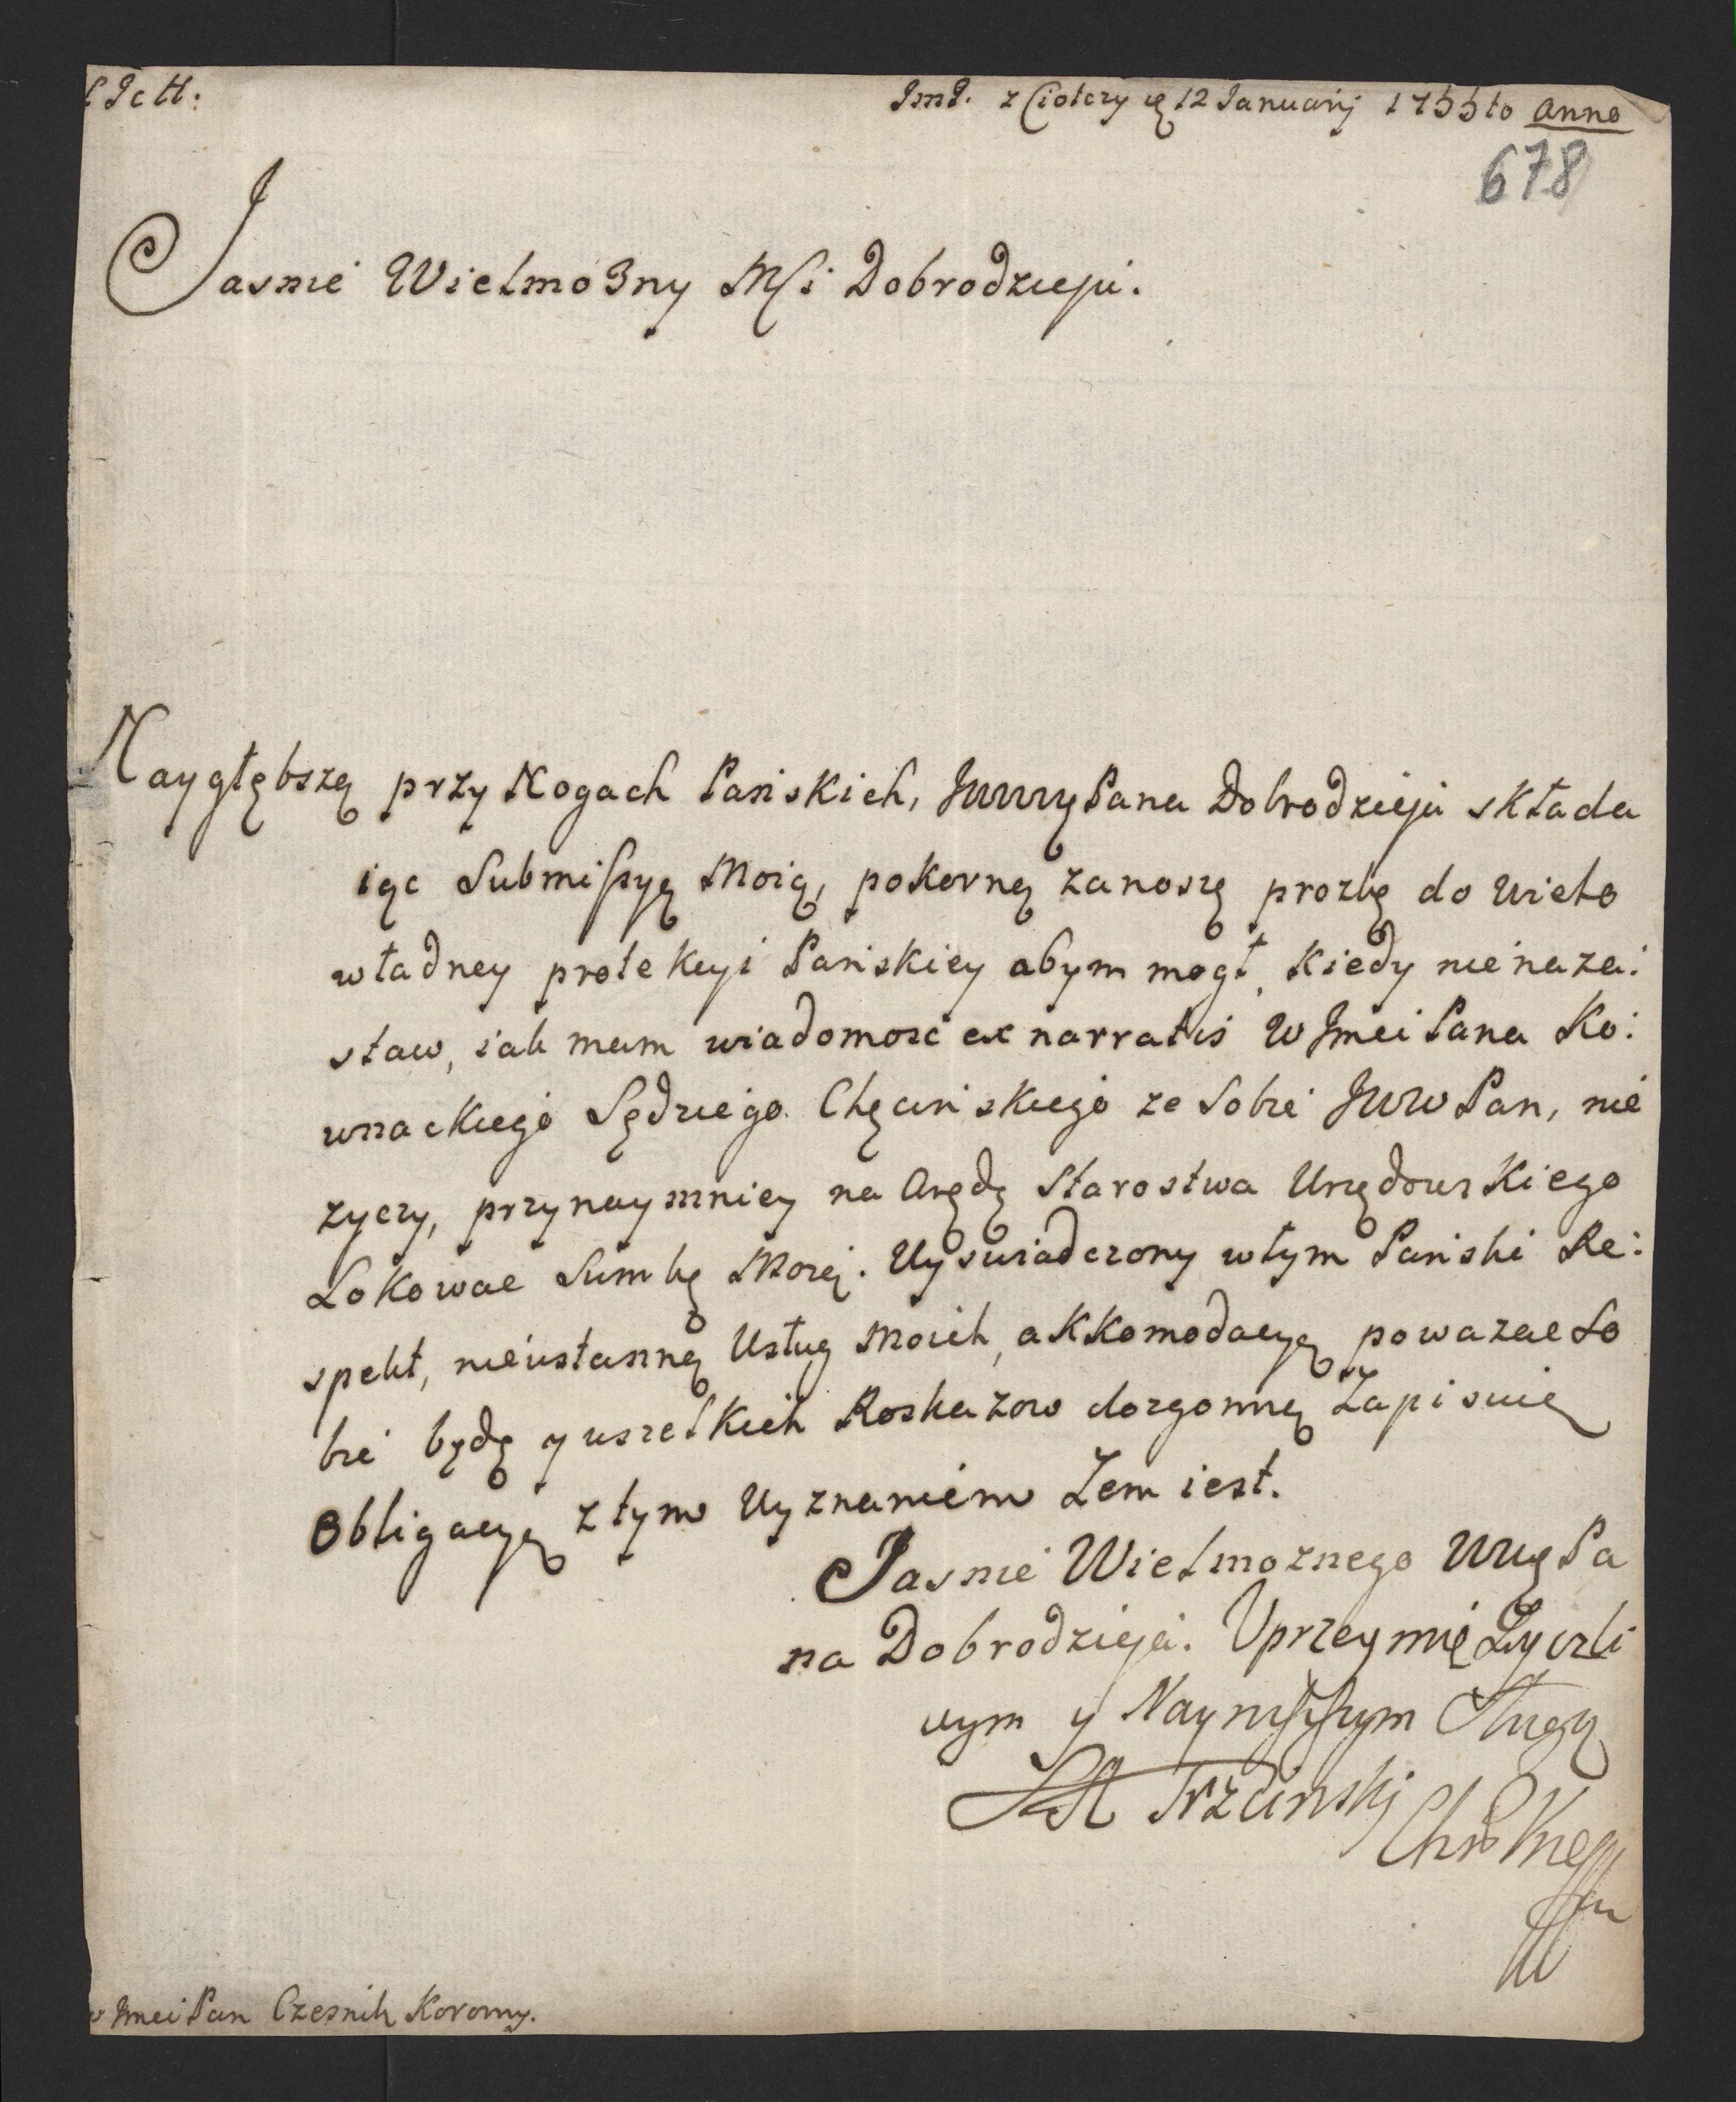 Jmd. z Ciotczy ę 12 Januarij 1755to Anno
678
Jasnie Wielmożny Msci Dobrodzieju.
Naygłębszą przy Nogach Pańskich, JWWMgPana Dobrodzieja składa
iąc Submissyą Moią, pokorną zanoszę prozbę do wielo
władney protekcyi Pańskiey abym mogł, kiedy nie na za:
staw, iak mam wiadomosc ex narratis WJmci Pana Ko:
wnackiego Sędziego Chęcinskiego ze Sobie JWW Pan, nie
zyczy, przynaymniey na Arędę Starostwa Urzędowskiego
Lokowac Sumkę Moię. Wyswiadczony wtym Pański Re:
spekt, nieustanną Usług Moich, akkomodacyą powazac So
bie będę y wszelkich Roskazow dozgonną Zapisuię
Obligacyą z tym Wyznaniem Zem iest.
Jasnie Wielmoznego WMgPa
na Dobrodzieja. Uprzeymię Zyczli
wym y Naynisszym Sługą
Trzcinski
Jmci Pan Czesnik Koronny.